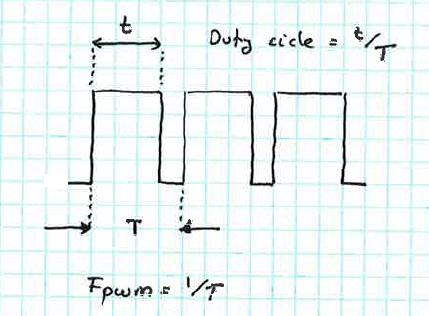 t
Duty cicle = t/T
T
Fpwm = 1/T